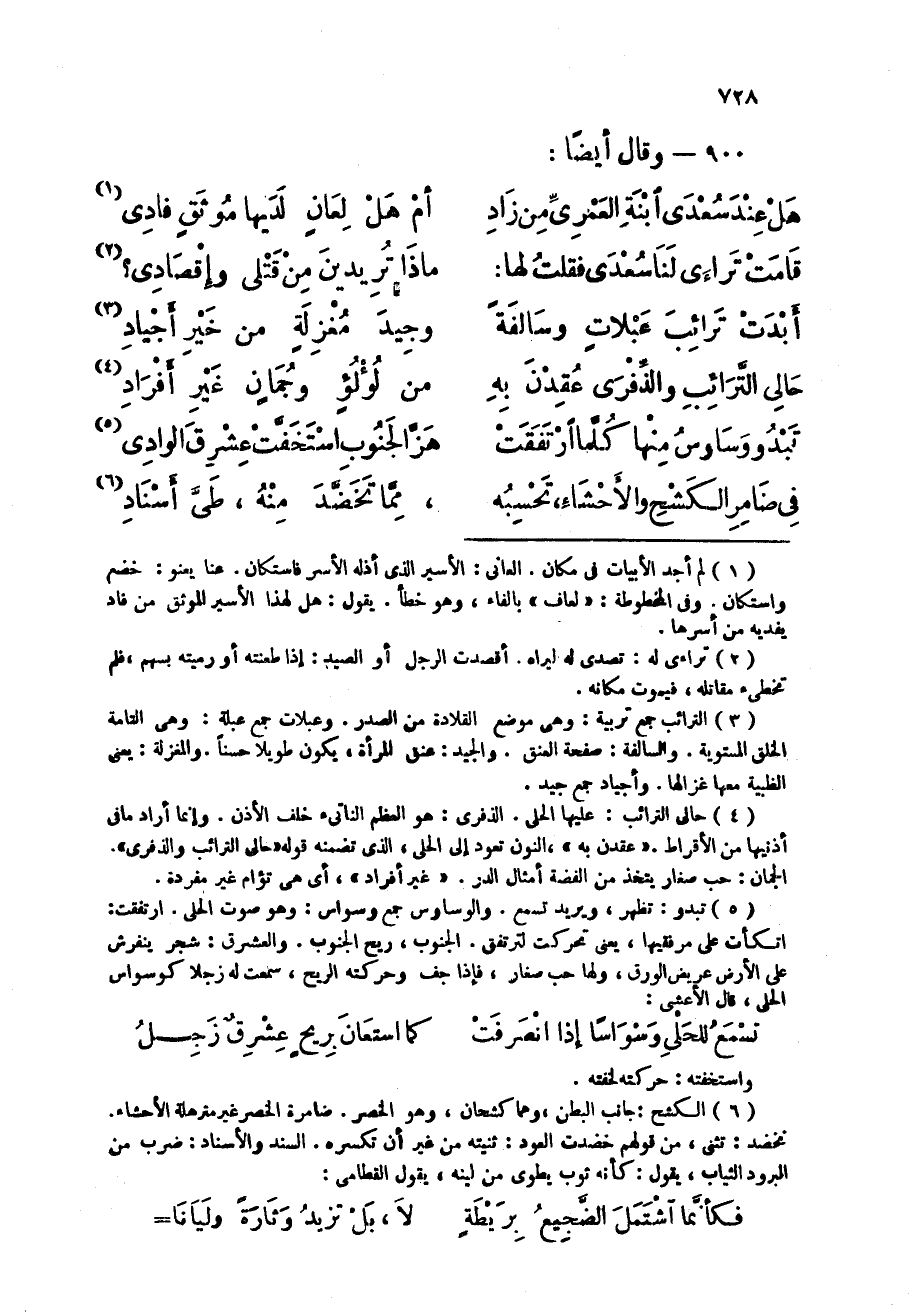 ٧٢٨
٩٠٠ — وقال أيضًا :
هَلْ عِنْدَ سُعْدَى ٱبْنَةِ العَمْرِىِّ مِن زَادِ أَمْ هَلْ لِعَانٍ لَدَيها مُوثَقٍ فادِى (١)
قَامَتْ تَرَاءَى لَنَا سُعْدَى فقلتُ لها : ماذَا تُرِيدينَ مِنْ قَتْلِى وإِقْصَادِى؟ (٢)
أَبْدَتْ تَرائِبَ عَبْلاتٍ وسَالفَةً وجِيدَ مُغْزِلَةٍ من خَيْرِ أَجْيادِ (٣)
حَالِى التَّرَائبِ والذِّفْرَى عُقِدْنَ بِهِ من لُؤْلُؤٍ وجُمَانٍ غَيْرِ أَفْرَادِ (٤)
تَبْدُو وَسَاوِسُ مِنْها كُلَّما ٱرْتَفَقَتْ هَزَّ الجَنُوبِ اسْتَخَفَّتْ عِشْرِقَ الوادِى (٥)
فِى ضَامِرِ الكَشْحِ والأَحْشَاءِ، تَحْسِبُه ، مِمَّا تَخَضَّدَ مِنْهُ ، طَىَّ أَسْنَادِ (٦)
( ١ ) لم أجد الأبيات فى مكان . العانى : الأسير الذى أذله الأسر فاستكان . عنا يعنو : خضع
واستكان . وفى المخطوطة : « لعاف » بالفاء ، وهو خطأ . يقول : هل لهذا الأسير الموثق من فاد
يفديه من أسرها .
( ٢ ) تراءى له : تصدى له ليراه . أقصدت الرجل أو الصيد : إذا طعنته أو رميته بسهم ، فلم
تخطىء مقاتله ، فيموت مكانه .
( ٣ ) الترائب جمع تريبة : وهى موضع القلادة من الصدر . وعبلات جمع عبلة : وهى التامة
الخلق المستوية . والسالفة : صفحة العنق . والجيد : عنق المرأة ، يكون طويلا حسناً . والمغزلة : يعنى
الظبية معها غزالها . وأجياد جمع جيد .
( ٤ ) حالى الترائب : عليها الحلى . الذفرى : هو العظم الناتىء خلف الأذن . وإنما أراد مافى
أذنيها من الأقراط . « عقدن به » ، النون تعود إلى الحلى ، الذى تضمنه قوله « حالى الترائب والذفرى » .
الجمان : حب صغار يتخذ من الفضة أمثال الدر . « غير أفراد » ، أى هى تؤام غير مفردة .
( ٥ ) تبدو : تظهر ، ويريد تسمع . والوساوس جمع وسواس : وهو صوت الحلى . ارتفقت :
اتكأت على مرفقيها ، يعنى تحركت لترتفق . الجنوب ، ريح الجنوب . والعشرق : شجر ينفرش
على الأرض عريض الورق ، ولها حب صغار ، فإذا جف وحركته الريح ، سمعت له زجلا كوسواس
الحلى ، قال الأعشى :
تَسْمَعُ للحَلْىِ وَسْوَاسًا إذا انْصَرفَتْ كما استعَانَ بِريحٍ عِشْرِقٌ زَجِلُ
واستخفته : حركته لخفته .
( ٦ ) الكشح : جانب البطن ، وهما كشحان ، وهو الخصر . ضامرة الخصر غير مترهلة الأحشاء .
تخضد : تثنى ، من قولهم خضدت العود : ثنيته من غير أن تكسره . السند والأسناد : ضرب من
البرود الثياب ، يقول : كأنه ثوب يطوى من لينه ، يقول القطامى :
فكأنَّما ٱشْتَمَلَ الضَّجِيعُ بِرَيْطَةٍ لاَ ، بَلْ تزيدُ وَثَارَةً ولَيَانَا=